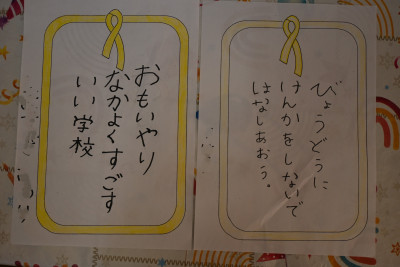 おもいやり
なかよくすごす
いい学校
びょうどうに
けんかをしないで
はなしあおう。